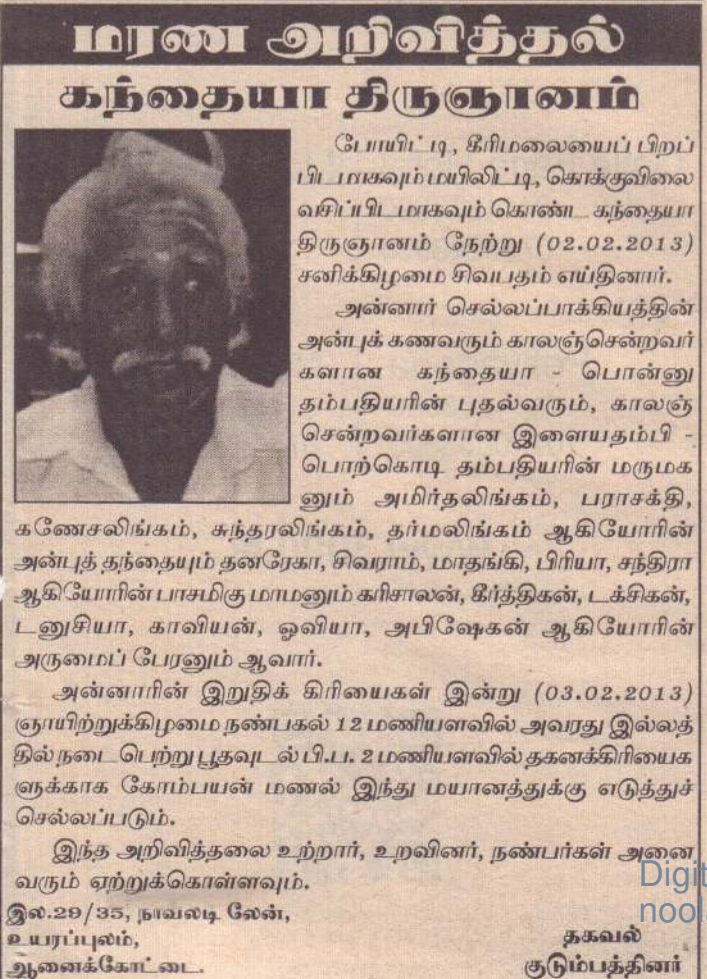 மரண அறிவித்தல்
கந்தையா திருஞானம்
போயிட்டி, கீரிமலையைப் பிறப்
பிடமாகவும் மயிலிட்டி, கொக்குவிலை
வசிப்பிடமாகவும் கொண்ட கந்தையா
திருஞானம் நேற்று (02.02.2013)
சனிக்கிழமை சிவபதம் எய்தினார்.
அன்னார் செல்லப்பாக்கியத்தின்
அன்புக் கணவரும் காலஞ்சென்றவர்
களான கந்தையா - பொன்னு
தம்பதியரின் புதல்வரும், காலஞ்
சென்றவர்களான இளையதம்பி -
பொற்கொடி தம்பதியரின் மருமக
னும் அமிர்தலிங்கம், பராசக்தி,
கணேசலிங்கம், சுந்தரலிங்கம், தர்மலிங்கம் ஆகியோரின்
அன்புத் தந்தையும் தனரேகா, சிவராம், மாதங்கி, பிரியா, சந்திரா
ஆகியோரின் பாசமிகு மாமனும் கரிசாலன், கீர்த்திகன், டக்சிகன்,
டனுசியா, காவியன், ஓவியா, அபிஷேகன் ஆகியோரின்
அருமைப் பேரனும் ஆவார்.
அன்னாரின் இறுதிக் கிரியைகள் இன்று (03.02.2013)
ஞாயிற்றுக்கிழமை நண்பகல் 12 மணியளவில் அவரது இல்லத்
தில் நடைபெற்று பூதவுடல் பி.ப. 2 மணியளவில் தகனக்கிரியைக
ளுக்காக கோம்பயன் மணல் இந்து மயானத்துக்கு எடுத்துச்
செல்லப்படும்.
இந்த அறிவித்தலை உற்றார், உறவினர், நண்பர்கள் அனை
வரும் ஏற்றுக்கொள்ளவும்.
இல.29/35, நாவலடி லேன்,
உயரப்புலம்,
ஆனைக்கோட்டை.
தகவல்
குடும்பத்தினர்
Digit
nool